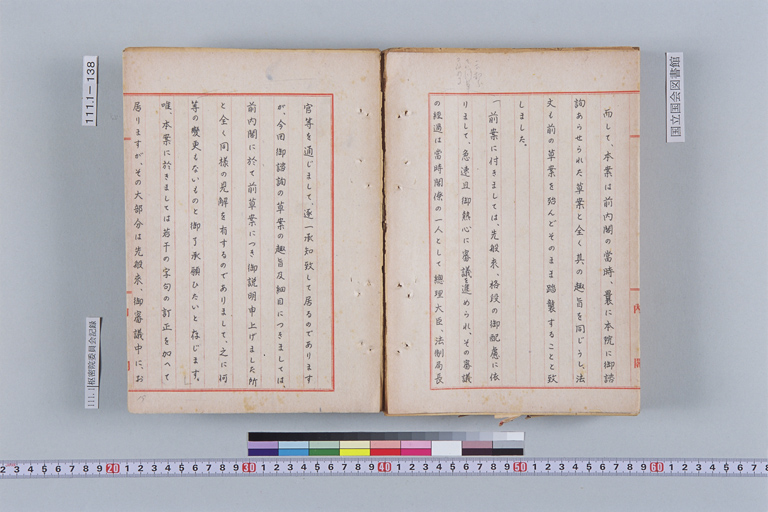 而して、本案は前内閣の當時、曩に本院に御諮
詢あらせられた草案と全く其の趣旨を同じうし、法
文も前の草案を殆んどそのまま踏襲することと致
しました。
「前案に付きましては、先般来、格段の御配慮に依
りまして、急速且御熱心に審議を進められ、その審議
の経過は當時閣僚の一人として總理大臣、法制局長
官等を通じまして、逐一承知致して居るのであります
が、今回御諮詢の草案の趣旨及細目につきましては、
前内閣に於て前草案につき御説明申上げました所
と全く同様の見解を有するのでありまして、之に何
等の變更もないものと御了承願ひたいと存じます。
唯、本案に於きましては若干の字句の訂正を加へて
居りますが、その大部分は先般来、御審議中に、お
内閣
国立国会図書館
111.1-138
111.1 枢密院委員会記録
2 3 4 5 6 7 8 9 20 1 2 3 4 5 6 7 8 9 30 1 2 3 4 5 6 7 8 9 40 1 2 3 4 5 6 7 8 9 50 1 2 3 4 5 6 7 8 9 60 1 2 3 4 5 6 7 8